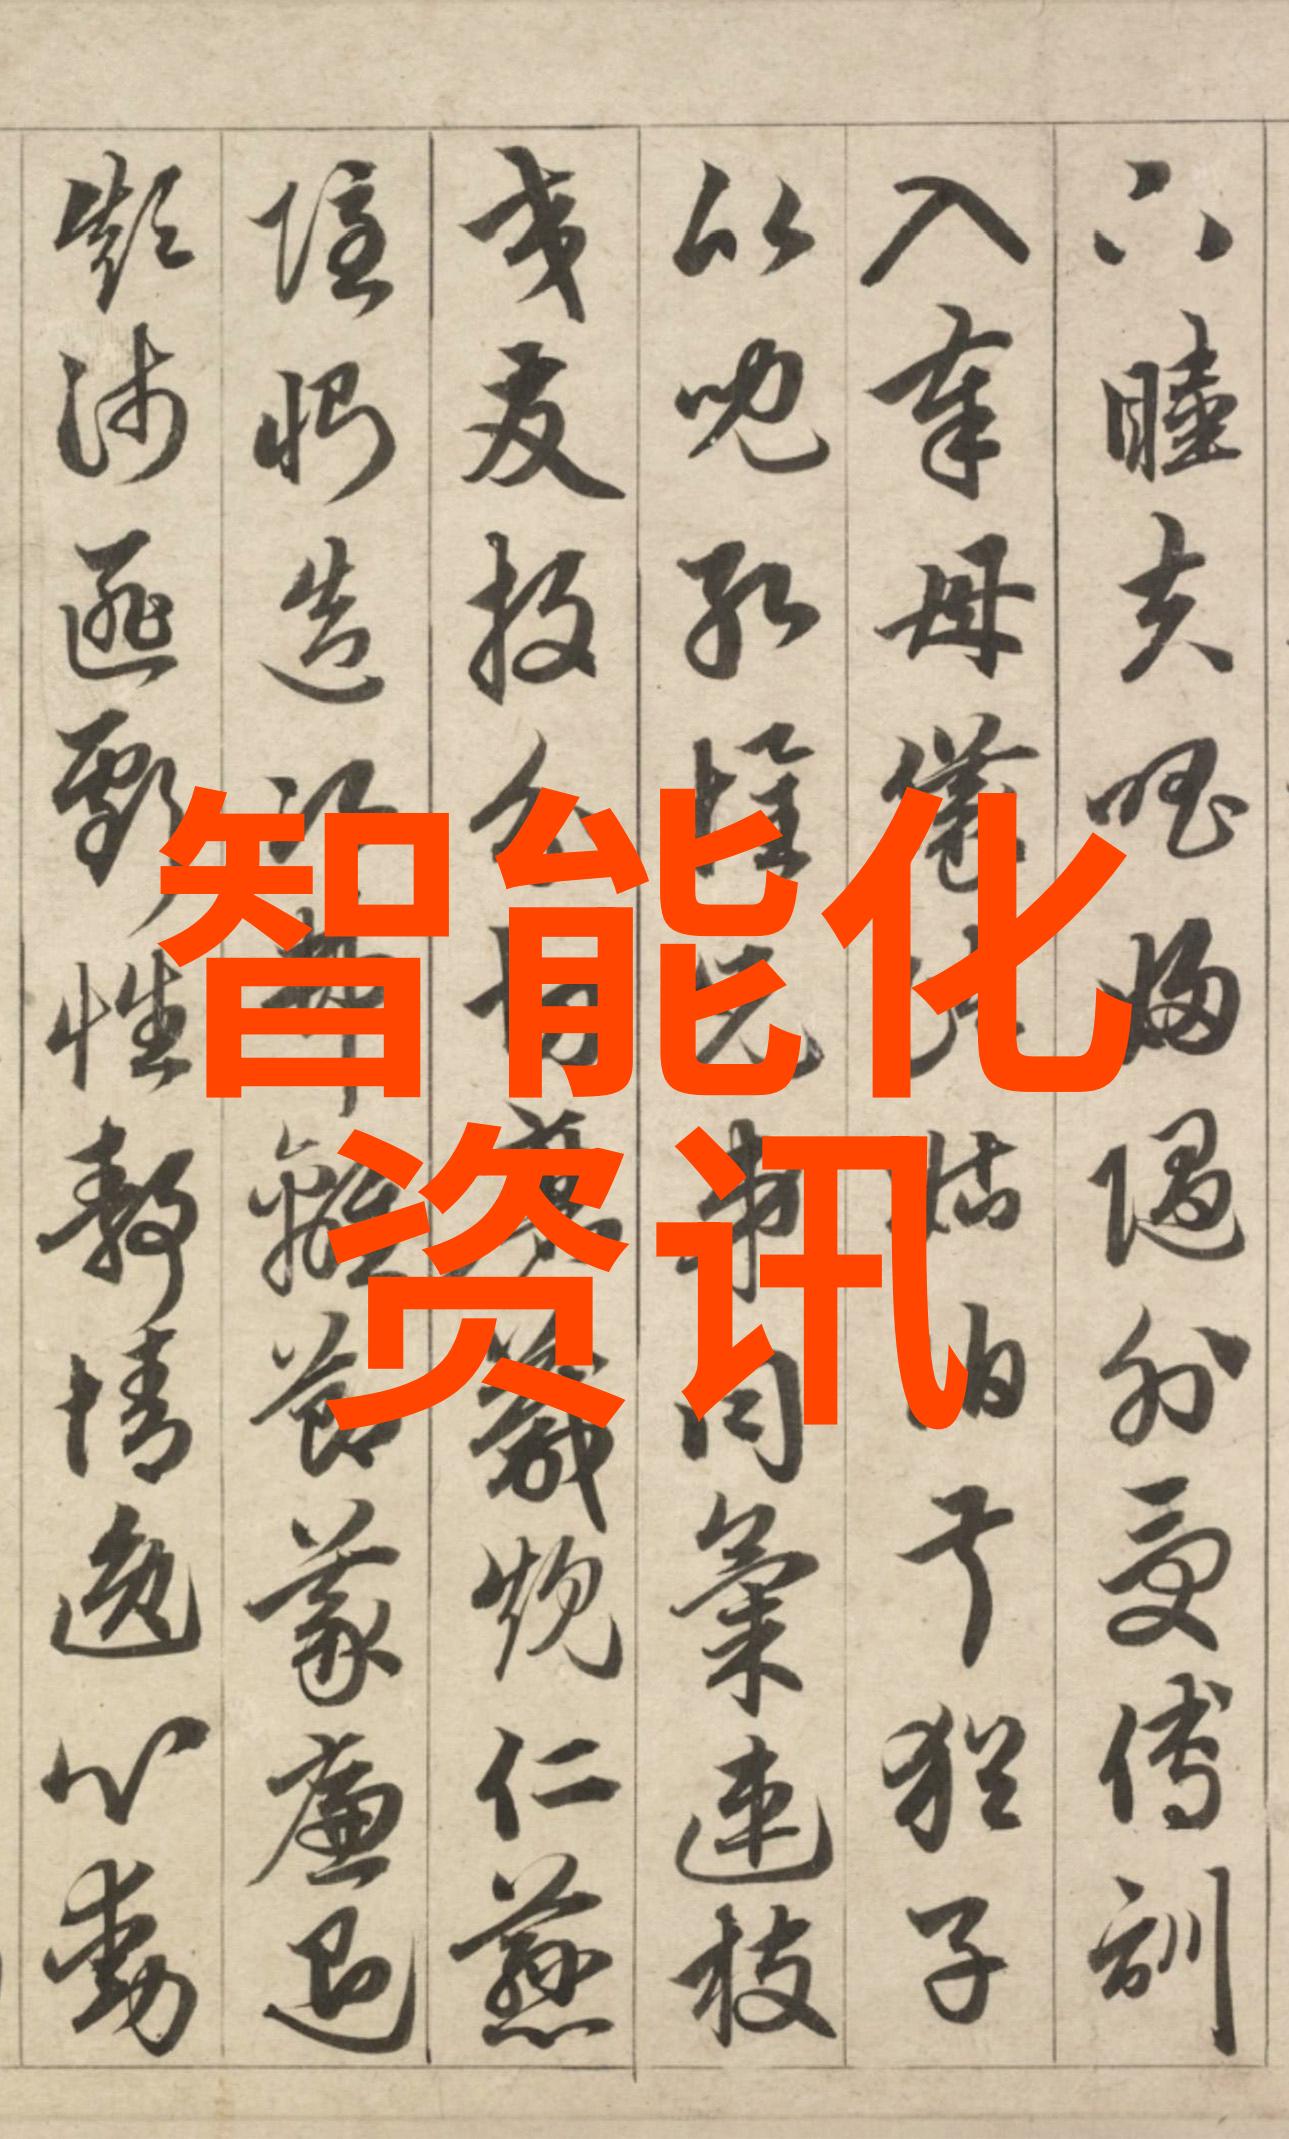 下睦夫唱婦隨外受傅訓
入奉母儀諸姑伯叔猶子
比兒孔懷兄弟同氣連枝
交友投分切磨箴規仁慈
隱惻造次弗離節義廉退
顛沛匪虧性靜情逸心動
智能化
资讯